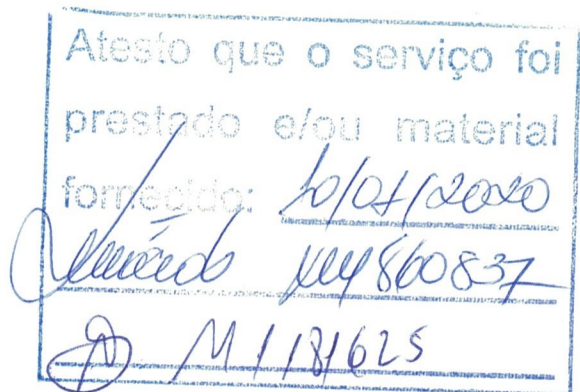 Atesto que o serviço foi
prestado e/ou material
fornecido: 10/01/2020
860837
M1181625